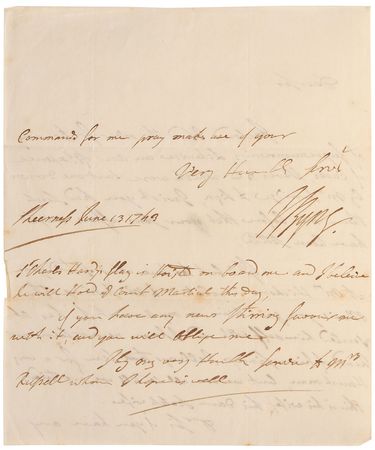 Commands for me pray make use of your
Very Humble Serv.t
JByng.
Sheerness June 13 1743
S.r Charles Hardys flag is hoisted on board me and I beleive
he will Hold a Court Martial this day,
if you have any news stirring favour me
with it, and you will oblige me
My very Humble Service to M.rs
Russell whom I hope is well